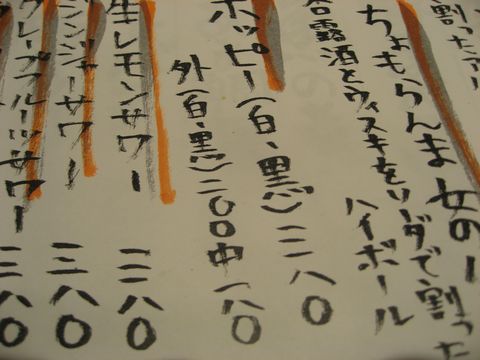 割ったアー
ちょもらんま女の
露酒とウィスキをソーダで割った
ハイボール
ホッピー(白・黒) 三八〇
外(白・黒)二〇〇中一八〇
生レモンサワー 三八〇
ジンジャーサワー 三八〇
グレープフルーツサワー 三八〇